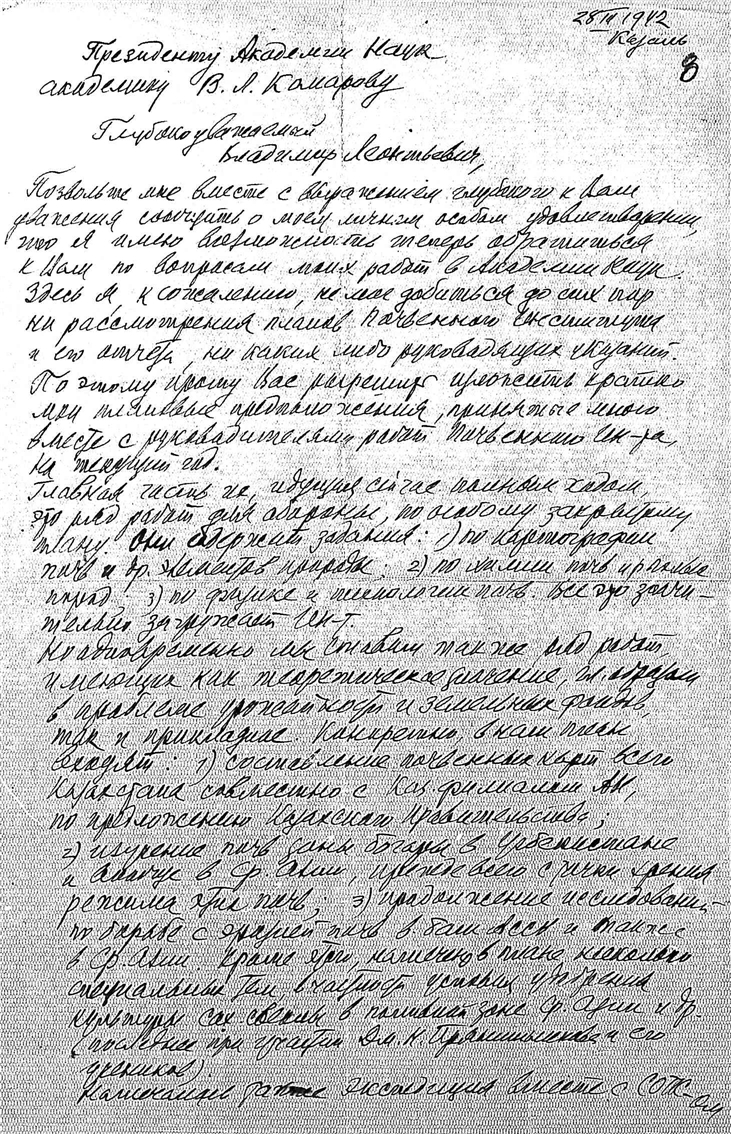 28 III 1942
Казань
8
Президенту Академии Наук
академику В. Л. Комарову
Глубокоуважаемый
Владимир Леонтьевич,
Позвольте мне вместе с выражением глубокого к Вам
уважения сообщить о моем личном особом удовлетворении,
что я имею возможность теперь обратиться
к Вам по вопросам моих работ в Академии Наук.
Здесь я, к сожалению, не мог добиться до сих пор
ни рассмотрения планов Почвенного Института
и его отчета, ни каких либо руководящих указаний.
Поэтому прошу Вас разрешить изложить кратко
мои плановые предположения, принятые мною
вместе с руководителями работ Почвенного Ин-та,
на текущий год.
Главная часть их, идущая сейчас полным ходом,
это ряд работ для обороны, по особому закрытому
плану. Они содержат задания: 1) по картографии
почв и др. элементов природы; 2) по химии почв и
пород 3) по физике и технологии почв. Все это значи-
тельно загружает Ин-т.
Но одновременно мы ставим также ряд работ,
имеющих как теоретическое значение, гл. образом
в проблеме урожайности и земельных фондов,
так и прикладное. Конкретно, в наш план
входят: 1) составление почвенных карт всего
Казахстана совместно с Каз. филиалом АН,
по предложению Казахского Правительства;
2) изучение почв зоны богары в Узбекистане
и вообще в Ср. Азии, прежде всего с точки зрения
режима этих почв; 3) продолжение исследований
по борьбе с эрозией почв в Баш АССР и также
в Ср. Азии. Кроме этого, намечено в плане несколько
специальных тем, в частности условия удобрения
культуры сах. свеклы в поливной зоне Ср. Азии и др.
(последнее при участии Дм. Н. Прянишникова и его
учеников).
Намечается экспедиция вместе с СОПС-ом